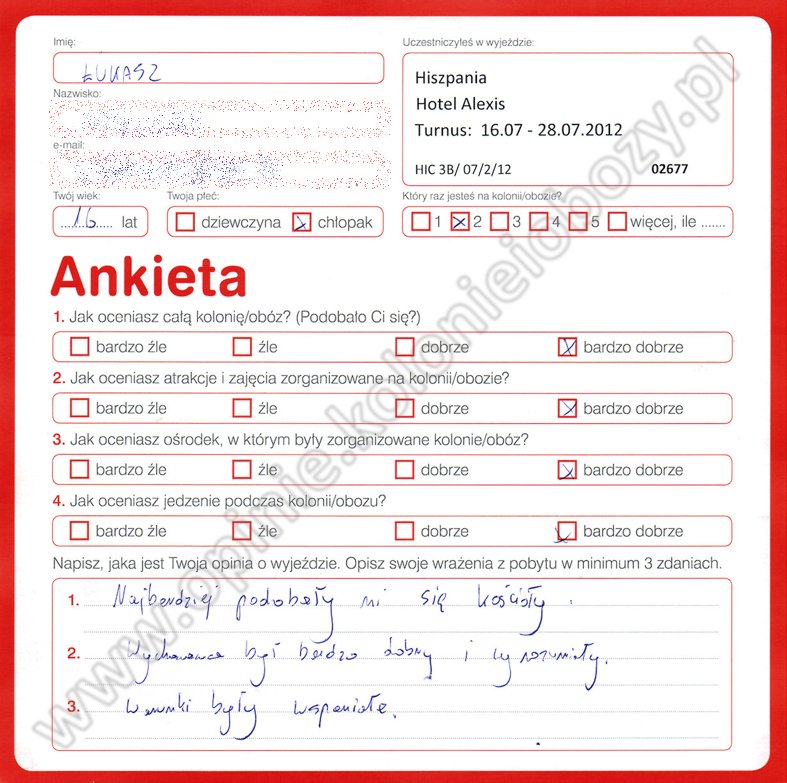 Imię:
ŁUKASZ
Nazwisko:
e-mail:
Twój wiek:
16 lat
Twoja płeć:
dziewczyna chłopak
Uczestniczyłeś w wyjeździe:
Hiszpania
Hotel Alexis
Turnus: 16.07 - 28.07.2012
HIC 3B/ 07/2/12 02677
Który raz jesteś na kolonii/obozie?
1 2 3 4 5 więcej, ile .......
Ankieta
1. Jak oceniasz całą kolonię/obóz? (Podobało Ci się?)
bardzo źle źle dobrze bardzo dobrze
2. Jak oceniasz atrakcje i zajęcia zorganizowane na kolonii/obozie?
bardzo źle źle dobrze bardzo dobrze
3. Jak oceniasz ośrodek, w którym były zorganizowane kolonie/obóz?
bardzo źle źle dobrze bardzo dobrze
4. Jak oceniasz jedzenie podczas kolonii/obozu?
bardzo źle źle dobrze bardzo dobrze
Napisz, jaka jest Twoja opinia o wyjeździe. Opisz swoje wrażenia z pobytu w minimum 3 zdaniach.
1. Najbardziej podobały mi się kościoły.
2. Wychowawca był bardzo dobry i wyrozumiały.
3. Warunki były wspaniałe.
www.opinie.kolonieiobozy.pl